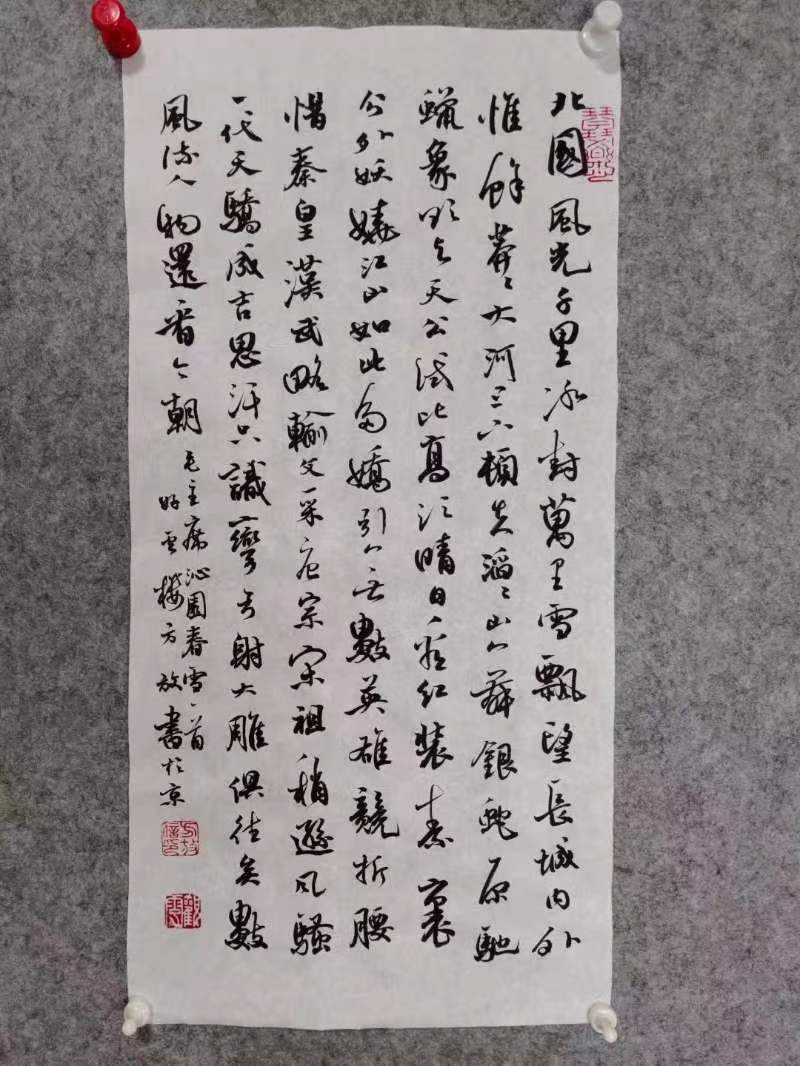 北國風光千里冰封萬里雪飄望長城内外
惟餘莽〻大河上下頓失滔〻山舞銀蛇原馳
蠟象欲与天公試比高須晴日看紅裝素裹
分外妖嬈江山如此多嬌引无數英雄競折腰
惜秦皇漢武略輸文采唐宗宋祖稍遜风騷
一代天驕成吉思汗只識彎弓射大雕俱往矣數
風流人物還看今朝
毛主席沁園春雪一首
方放書於京